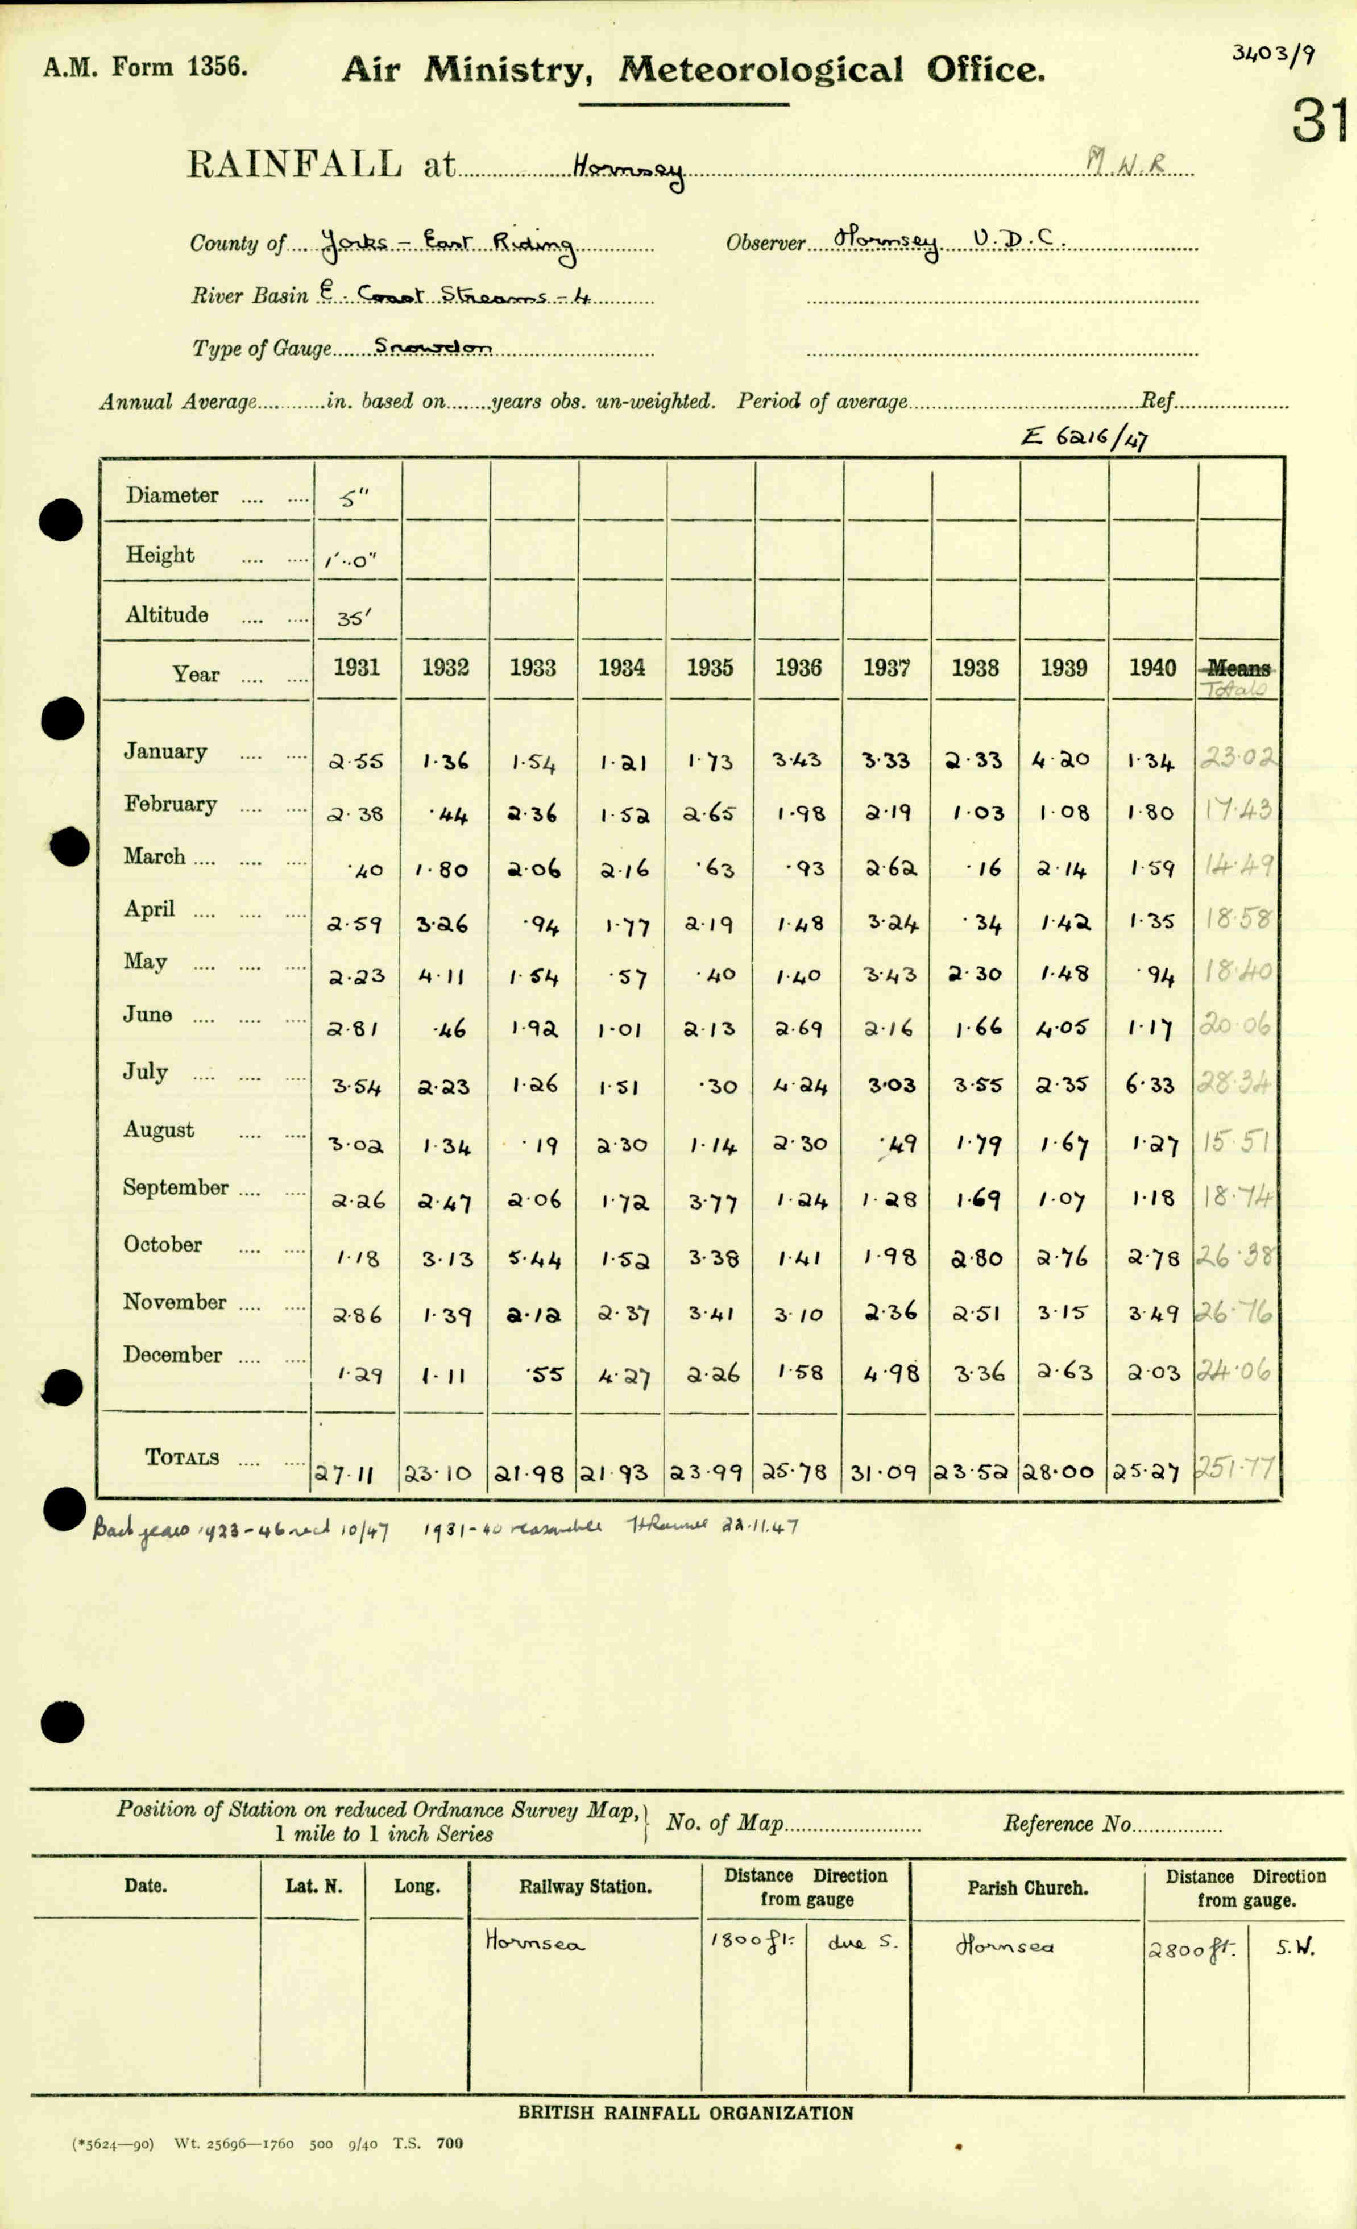 3403/9
A.M. Form 1356. Air Ministry, Meteorological Office.
31
RAINFALL at Hornsey M.W.R
County of Yorks - East Riding Observer Hornsey U.D.C.
River Basin E. Coast Streams - 4
Type of Gauge Snowdon
Annual Average in. based on years obs. un-weighted. Period of average Ref.
E 6216/47
Diameter 5"
Height 1'.0"
Altitude 35'
Year 1931 1932 1933 1934 1935 1936 1937 1938 1939 1940 Means
Totals
January 2.55 1.36 1.54 1.21 1.73 3.43 3.33 2.33 4.20 1.34 23.02
February 2.38 .44 2.36 1.52 2.65 1.98 2.19 1.03 1.08 1.80 17.43
March .40 1.80 2.06 2.16 .63 .93 2.62 .16 2.14 1.59 14.49
April 2.59 3.26 .94 1.77 2.19 1.48 3.24 .34 1.42 1.35 18.58
May 2.23 4.11 1.54 .57 .40 1.40 3.43 2.30 1.48 .94 18.40
June 2.81 .46 1.92 1.01 2.13 2.69 2.16 1.66 4.05 1.17 20.06
July 3.54 2.23 1.26 1.51 .30 4.24 3.03 3.55 2.35 6.33 28.34
August 3.02 1.34 .19 2.30 1.14 2.30 .49 1.79 1.67 1.27 15.51
September 2.26 2.47 2.06 1.72 3.77 1.24 1.28 1.69 1.07 1.18 18.74
October 1.18 3.13 5.44 1.52 3.38 1.41 1.98 2.80 2.76 2.78 26.38
November 2.86 1.39 2.12 2.37 3.41 3.10 2.36 2.51 3.15 3.49 26.76
December 1.29 1.11 .55 4.27 2.26 1.58 4.98 3.36 2.63 2.03 24.06
TOTALS 27.11 23.10 21.98 21.93 23.99 25.78 31.09 23.52 28.00 25.27 251.77
Back years 1923-46 recd 10/47 1931-40 reasonable 22.11.47
Position of Station on reduced Ordnance Survey Map, No. of Map Reference No.
1 mile to 1 inch Series
Date. Lat. N. Long. Railway Station. Distance Direction from gauge Parish Church. Distance Direction from gauge.
Hornsea 1800 ft. due S. Hornsea 2800 ft. S.W.
BRITISH RAINFALL ORGANIZATION
(*5624—90) Wt. 25696—1760 500 9/40 T.S. 700